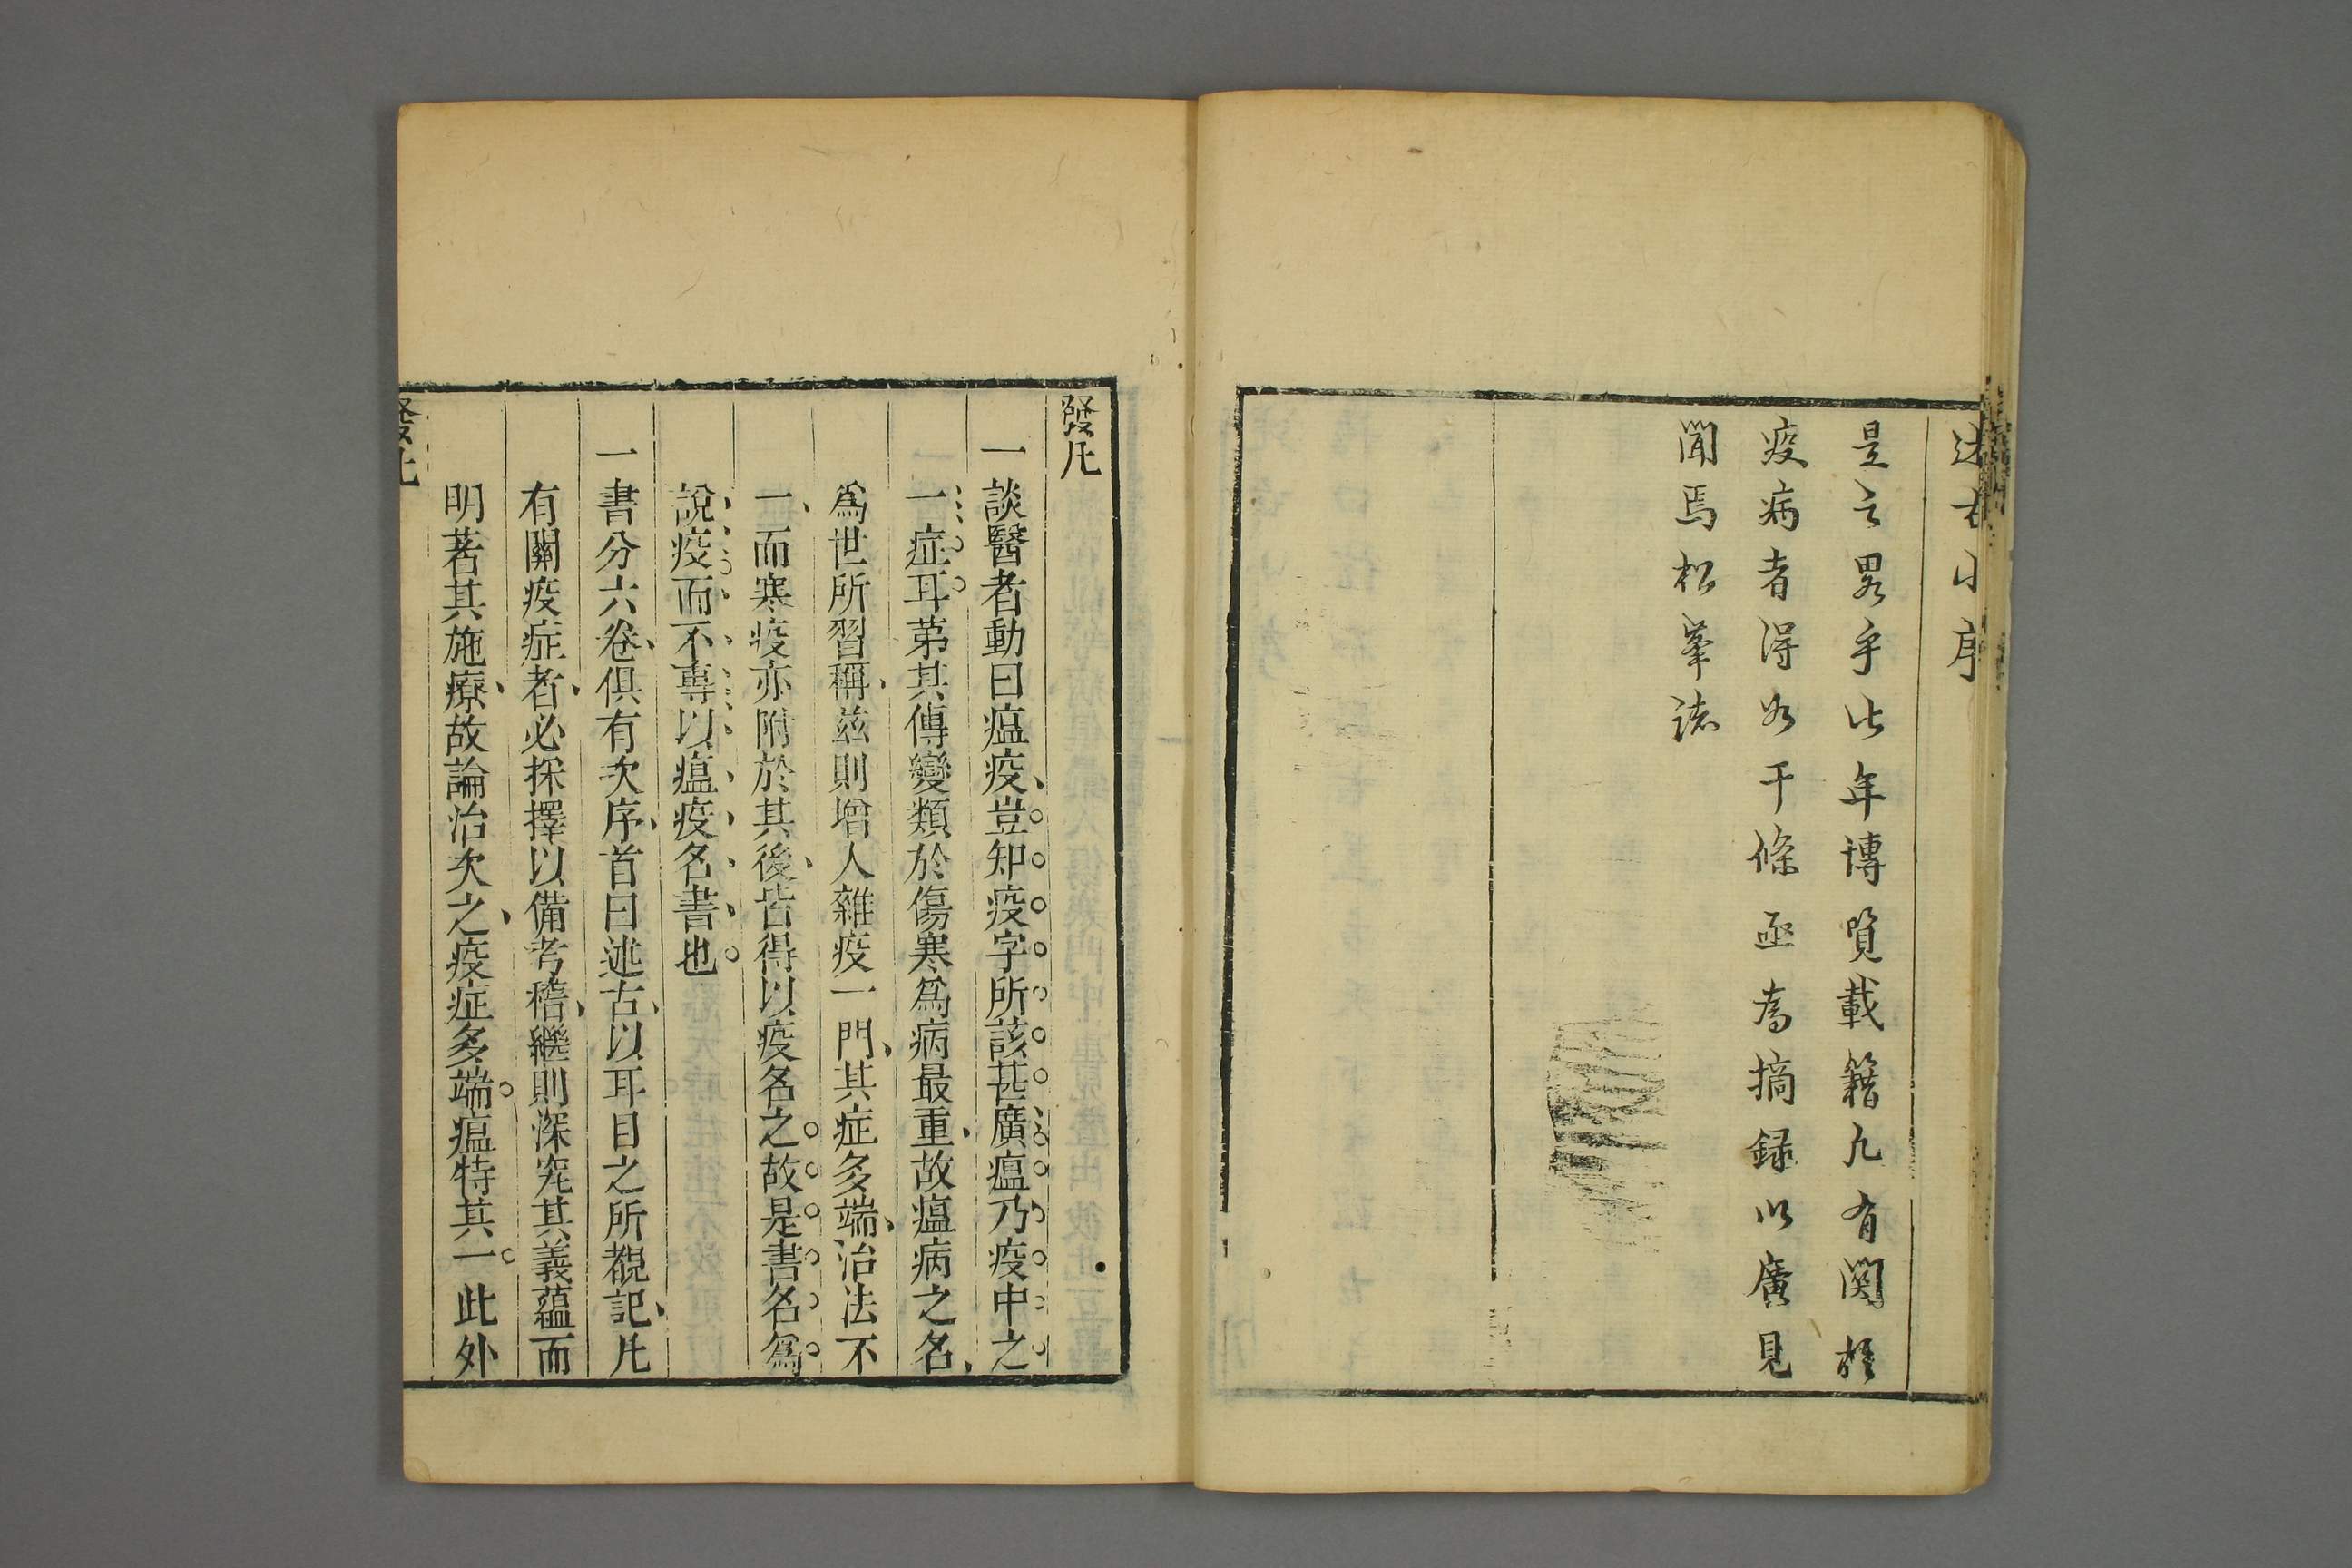 述古小序
是之畧乎比年博覽載籍凢有関於
疫病者得如干條亟為摘録以廣見
聞焉松峯誌
發凡
一談醫者動曰瘟疫豈知疫字所該甚廣瘟乃疫中之
一症耳苐其傳變類於傷寒爲病最重故瘟病之名
爲世所習稱茲則增入雜疫一門其症多端治法不
一而寒疫亦附於其後皆得以疫名之故是書名爲
說疫而不專以瘟疫名書也
一書分六卷俱有次序首曰述古以耳目之所覩記凡
有關疫症者必採擇以備考稽繼則深究其義蘊而
明著其施療故論治次之疫症多端瘟特其一此外
發凡